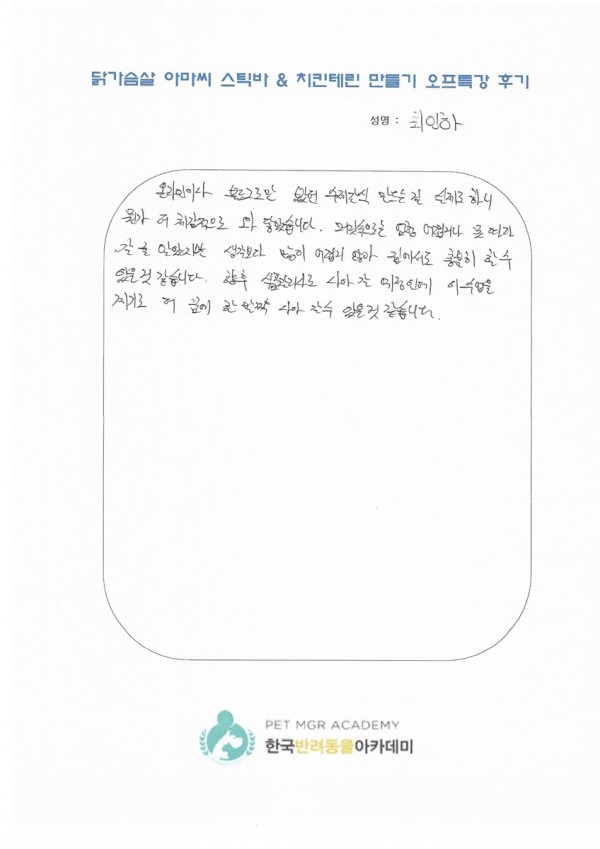 닭가슴살 아마씨 스틱바 & 치킨테린 만들기 오프특강 후기
성명 : 최인하
온라인이나 블로그로만 봤던 수제간식 만드는걸 실제로 하니
뭔가 더 체감적으로 와 닿았습니다.
줄 알았지만 생각보다 많이 어렵지 않아 집에서도 충분히 할 수
있을 것 같습니다. 향후 나아 갈 이 수업을
계기로 더 꿈에 한 발짝 나아 갈 수 있을 것 같습니다.
PET MGR ACADEMY
한국반려동물아카데미